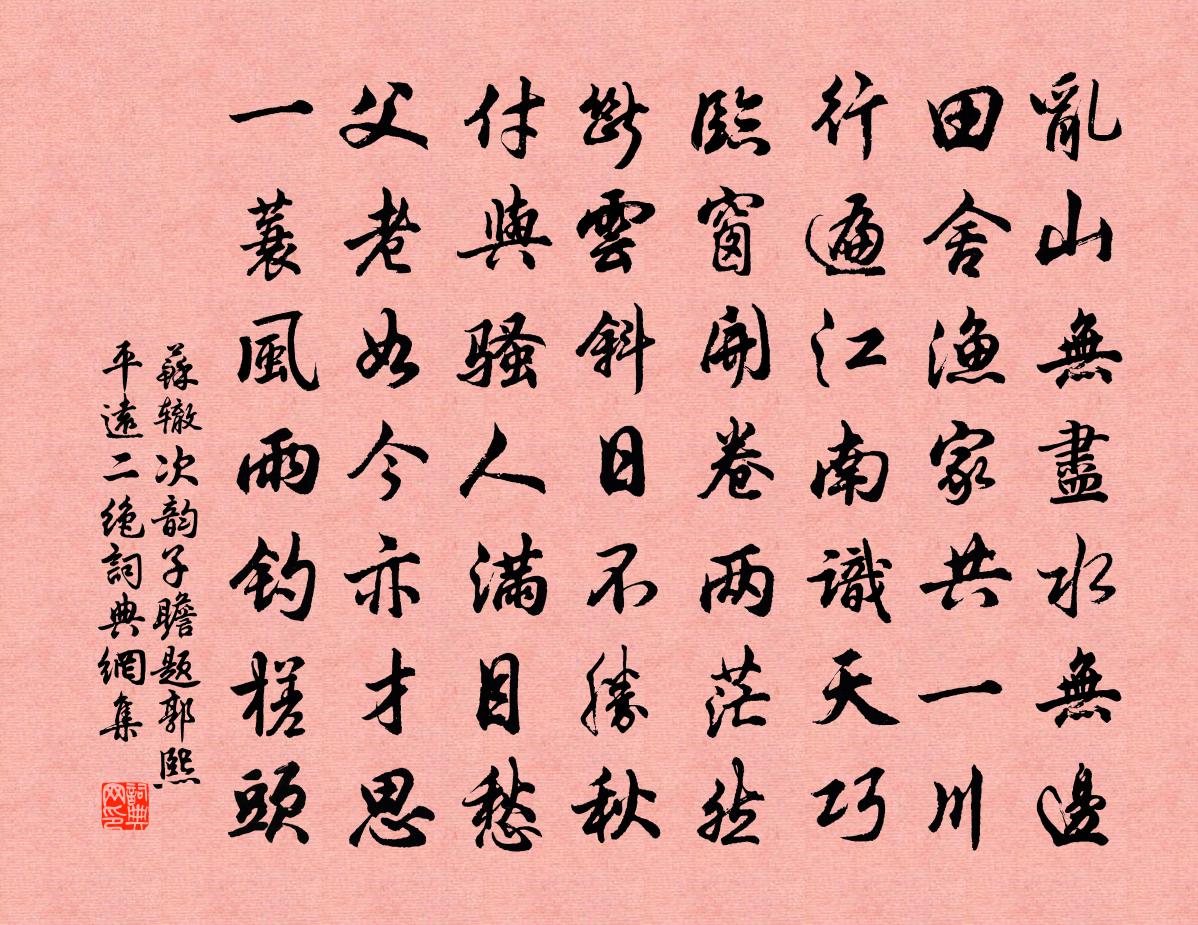 亂山無盡水無邊
田舍漁家共一川
行遍江南識天巧
臨窗開卷兩茫然
斷雲斜日不勝秋
付與騷人滿目愁
父老如今亦才思
一蓑風雨釣槎頭
蘇辙次韵子瞻题郭熙
平遠二绝詞典網集
詞典网印